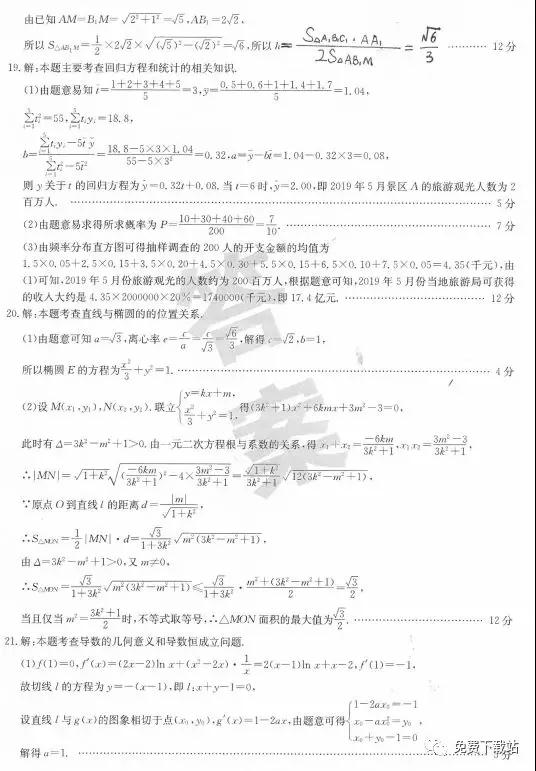 由已知 AM=B₁M=√(2²+1²)=√5,AB₁=2√2,
所以 S△AB₁M=1/2×2√2×√((√5)²-(√2)²)=√6,所以 h=(S△A₁B₁C₁·AA₁)/(2S△AB₁M)=√6/3 ………… 12分
19.解:本题主要考查回归方程和统计的相关知识.
(1)由题意易知 t̄=(1+2+3+4+5)/5=3,ȳ=(0.5+0.6+1+1.4+1.7)/5=1.04,
∑tᵢ²=55,∑tᵢyᵢ=18.8,
b=(∑tᵢyᵢ-5t̄ȳ)/(∑tᵢ²-5t̄²)=(18.8-5×3×1.04)/(55-5×3²)=0.32,a=ȳ-bt̄=1.04-0.32×3=0.08,
则 y 关于 t 的回归方程为 ŷ=0.32t+0.08. 当 t=6 时,ŷ=2.00,即 2019 年 5 月景区 A 的旅游观光人数为 2
百万人. ………… 5分
(2)由题意易求得所求概率为 P=(10+30+40+60)/200=7/10. ………… 7分
(3)由频率分布直方图可得抽样调查的 200 人的开支金额的均值为
1.5×0.05+2.5×0.15+3.5×0.20+4.5×0.30+5.5×0.15+6.5×0.10+7.5×0.05=4.35(千元),由
(1)可知,2019 年 5 月份旅游观光的人数约为 200 百万人,根据题意可知,2019 年 5 月份当地旅游局可获得
的收入大约是 4.35×2000000×20%=1740000(千元),即 17.4 亿元. ………… 12分
20.解:本题考查直线与椭圆的的位置关系.
(1)由题意可知 a=√3,离心率 e=c/a=c/√3=√6/3,解得 c=√2,b=1,
所以椭圆 E 的方程为 x²/3+y²=1. ………… 4分
(2)设 M(x₁,y₁),N(x₂,y₂). 联立{y=kx+m, x²/3+y²=1, 得(3k²+1)x²+6kmx+3m²-3=0,
此时有 Δ=3k²-m²+1>0. 由一元二次方程根与系数的关系,得 x₁+x₂=-6km/(3k²+1),x₁x₂=(3m²-3)/(3k²+1),
∴|MN|=√(1+k²)√((-6km/(3k²+1))²-4×(3m²-3)/(3k²+1))=√(1+k²)/(3k²+1)√(12(3k²-m²+1)),
∵原点 O 到直线 l 的距离 d=|m|/√(1+k²),
∴S△MON=1/2|MN|·d=√3/(1+3k²)√(m²(3k²-m²+1)).
由 Δ=3k²-m²+1>0,又 m≠0,
∴S△MON=√3/(1+3k²)√(m²(3k²-m²+1))≤√3/(1+3k²)·(m²+(3k²-m²+1))/2=√3/2,
当且仅当 m²=(3k²+1)/2 时,不等式取等号,∴△MON 面积的最大值为 √3/2. ………… 12分
21.解:本题考查导数的几何意义和导数恒成立问题.
(1)f(1)=0,f′(x)=(2x-2)ln x+(x²-2x)·1/x=2(x-1)ln x+x-2,f′(1)=-1,
故切线 l 的方程为 y=-(x-1),即 l:x+y-1=0,
设直线 l 与 g(x)的图象相切于点(x₀,y₀),g′(x)=1-2ax,由题意可得{1-2ax₀=-1 x₀-ax₀²=y₀ x₀+y₀-1=0,
解得 a=1. ………… 5分
答案
免费下载站